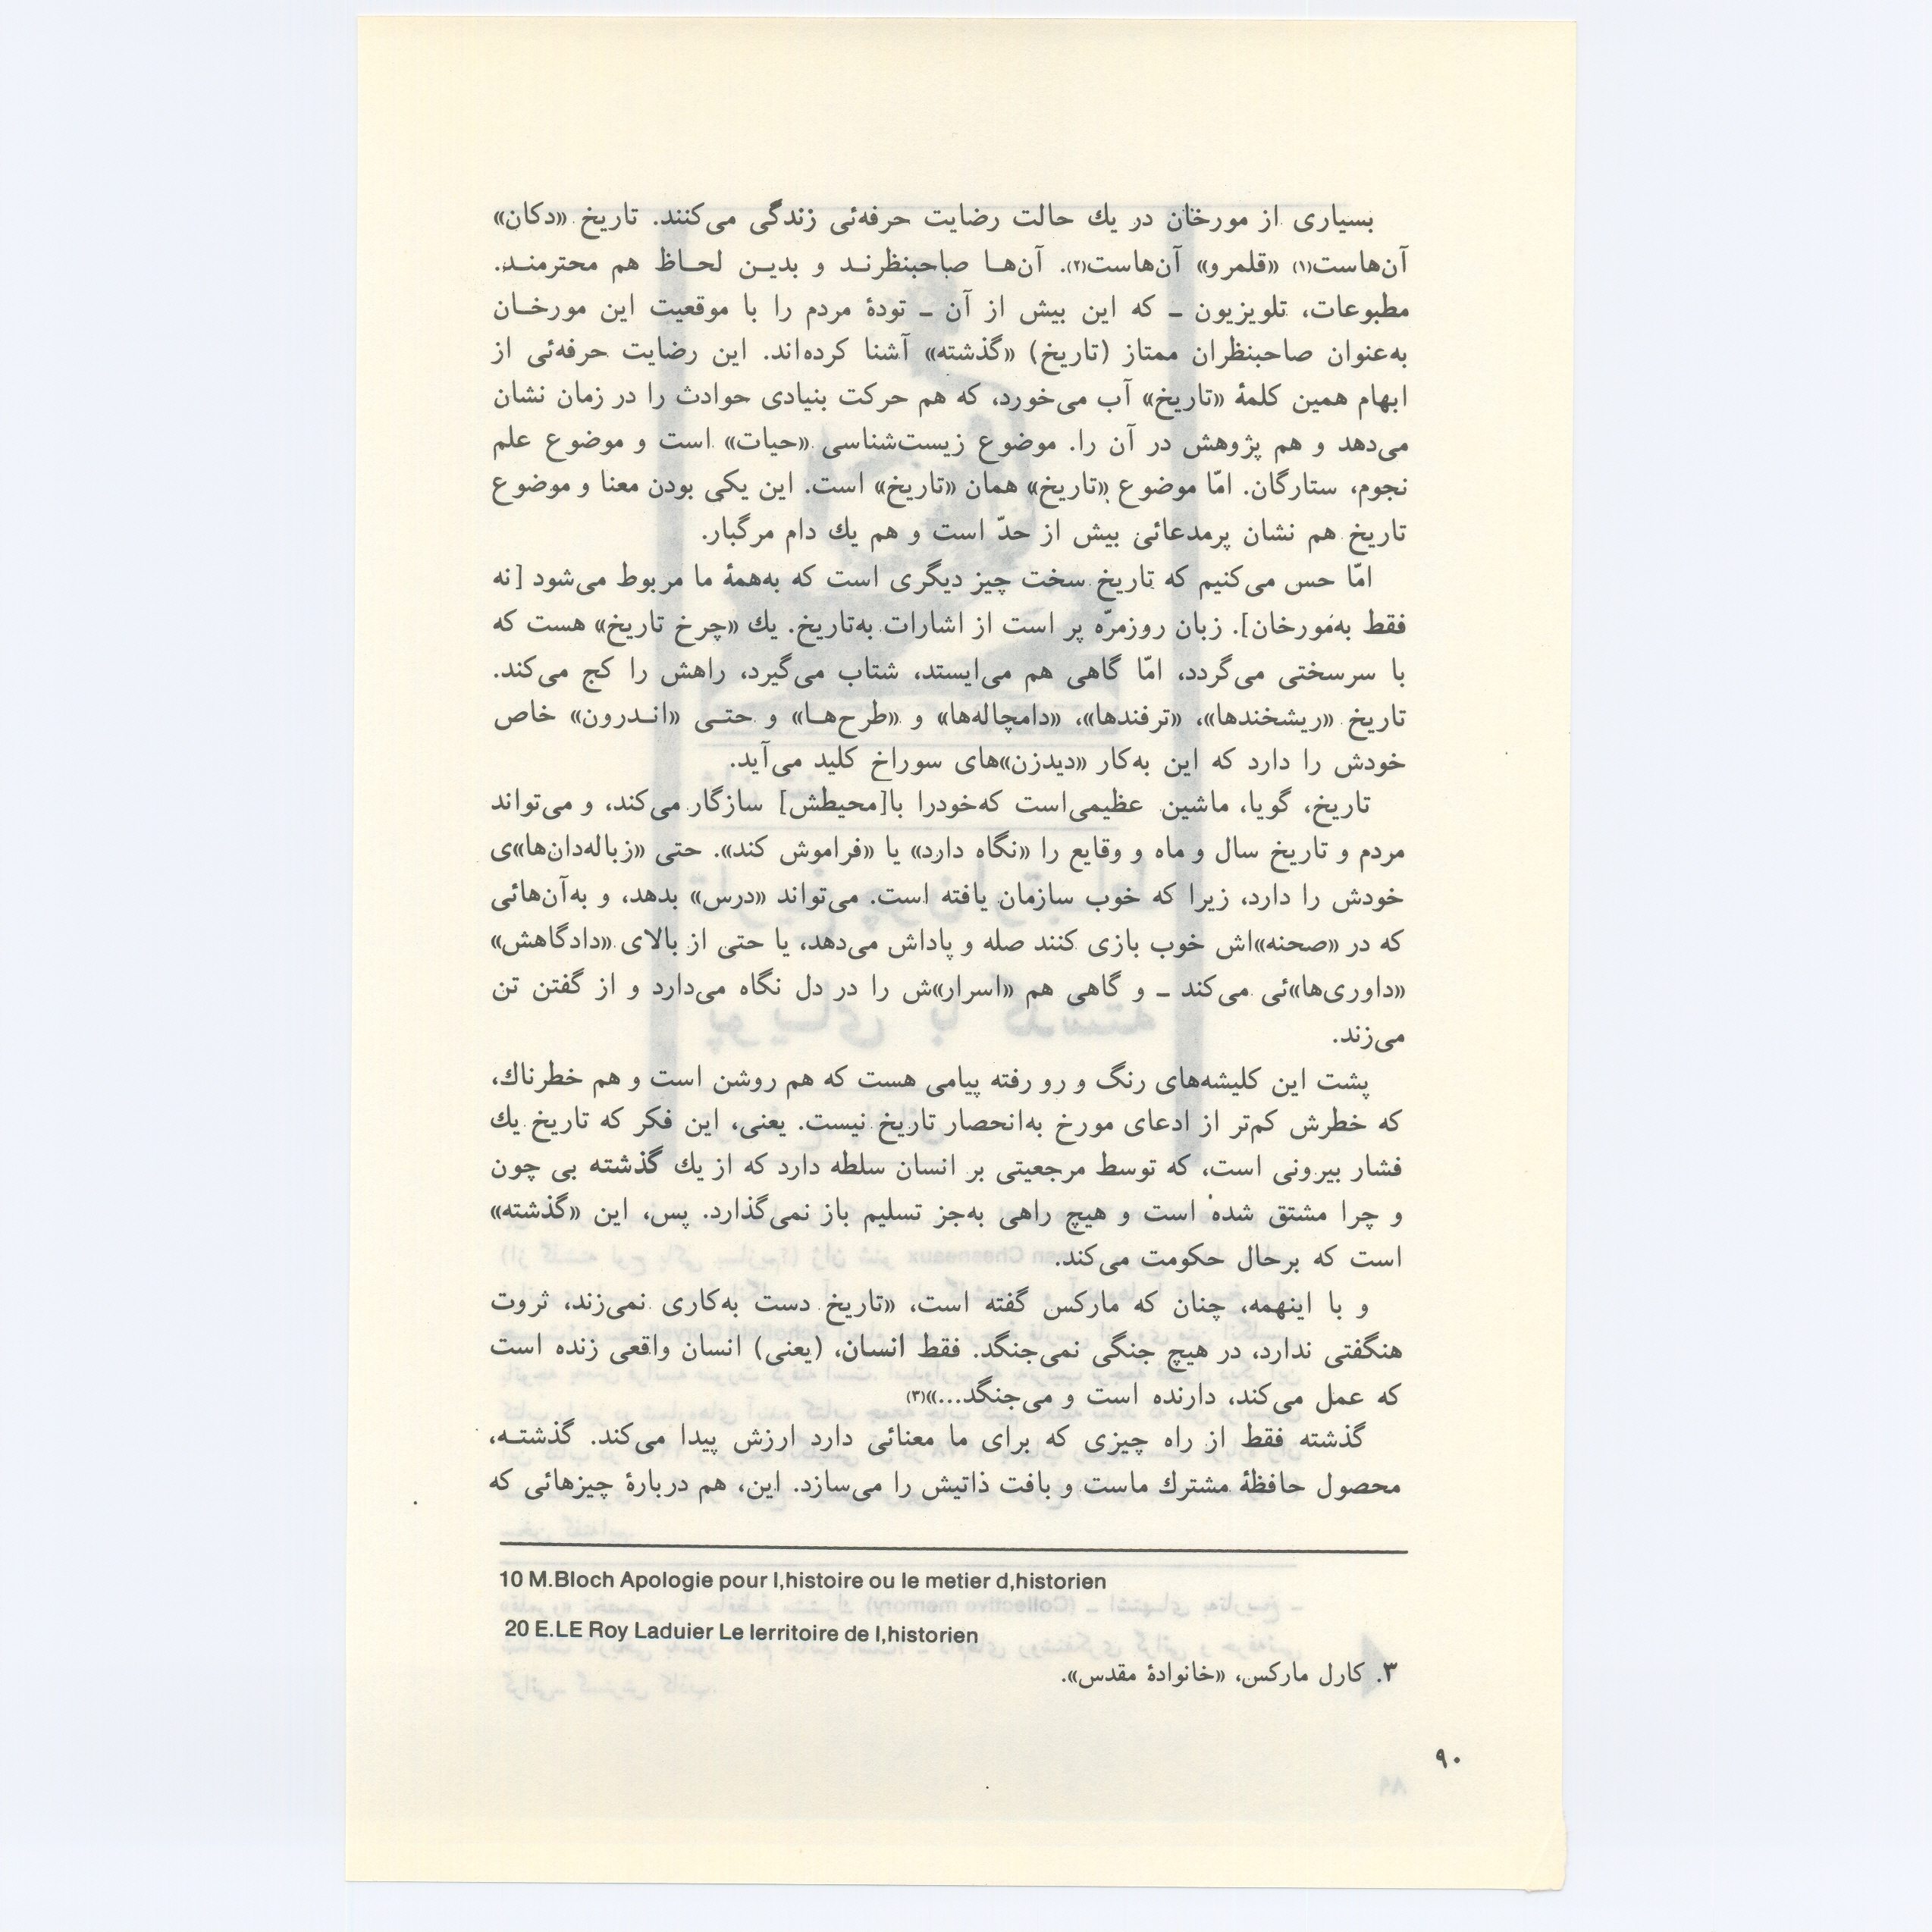 بسیاری از مورخان در یك حالت رضایت حرفه‌ئی زندگی می‌کنند. تاریخ «دکان»
آن‌هاست(۱) «قلمرو» آن‌هاست(۲). آن‌هـا صاحبنظرنـد و بدیـن لحـاظ هم محترمنـد.
مطبوعات، تلویزیون ـ که این بیش از آن ـ تودهٔ مردم را با موقعیت این مورخـان
به‌عنوان صاحبنظران ممتاز (تاریخ) «گذشته» آشنا کرده‌اند. این رضایت حرفه‌ئی از
ابهام همین کلمهٔ «تاریخ» آب می‌خورد، که هم حرکت بنیادی حوادث را در زمان نشان
می‌دهد و هم پژوهش در آن را. موضوع زیست‌شناسی «حیات» است و موضوع علم
نجوم، ستارگان. امّا موضوع «تاریخ» همان «تاریخ» است. این یکی بودن معنا و موضوع
تاریخ هم نشان پرمدعائی بیش از حدّ است و هم یك دام مرگبار.
امّا حس می‌کنیم که تاریخ سخت چیز دیگری است که به‌همهٔ ما مربوط می‌شود [نه
فقط به‌مورخان]. زبان روزمرّه پر است از اشارات به‌تاریخ. یك «چرخ تاریخ» هست که
با سرسختی می‌گردد، امّا گاهی هم می‌ایستد، شتاب می‌گیرد، راهش را کج می‌کند.
تاریخ «ریشخندها»، «ترفندها»، «دامچاله‌ها» و «طرح‌هـا» و حتـی «انـدرون» خاص
خودش را دارد که این به‌کار «دیدزن»های سوراخ کلید می‌آید.
تاریخ، گویا، ماشین عظیمی‌است که‌خودرا با[محیطش] سازگار می‌کند، و می‌تواند
مردم و تاریخ سال و ماه و وقایع را «نگاه دارد» یا «فراموش کند». حتی «زباله‌دان‌ها»ی
خودش را دارد، زیرا که خوب سازمان یافته است. می‌تواند «درس» بدهد، و به‌آن‌هائی
که در «صحنه»اش خوب بازی کنند صله و پاداش می‌دهد، یا حتی از بالای «دادگاهش»
«داوری‌ها»ئی می‌کند ـ و گاهی هم «اسرار»ش را در دل نگاه می‌دارد و از گفتن تن
می‌زند.
پشت این کلیشه‌های رنگ و رو رفته پیامی هست که هم روشن است و هم خطرناك،
که خطرش کم‌تر از ادعای مورخ به‌انحصار تاریخ نیست. یعنی، این فکر که تاریخ یك
فشار بیرونی است، که توسط مرجعیتی بر انسان سلطه دارد که از یك گذشته بی چون
و چرا مشتق شده است و هیچ راهی به‌جز تسلیم باز نمی‌گذارد. پس، این «گذشته»
است که برحال حکومت می‌کند.
و با اینهمه، چنان که مارکس گفته است، «تاریخ دست به‌کاری نمی‌زند، ثروت
هنگفتی ندارد، در هیچ جنگی نمی‌جنگد. فقط انسان، (یعنی) انسان واقعی زنده است
که عمل می‌کند، دارنده است و می‌جنگد...»(۳)
گذشته فقط از راه چیزی که برای ما معنائی دارد ارزش پیدا می‌کند. گذشتـه،
محصول حافظهٔ مشترك ماست و بافت ذاتیش را می‌سازد. این، هم دربارهٔ چیزهائی که
10 M.Bloch Apologie pour l,histoire ou le metier d,historien
20 E.LE Roy Laduier Le lerritoire de l,historien
۳. کارل مارکس، «خانوادهٔ مقدس».
۹۰